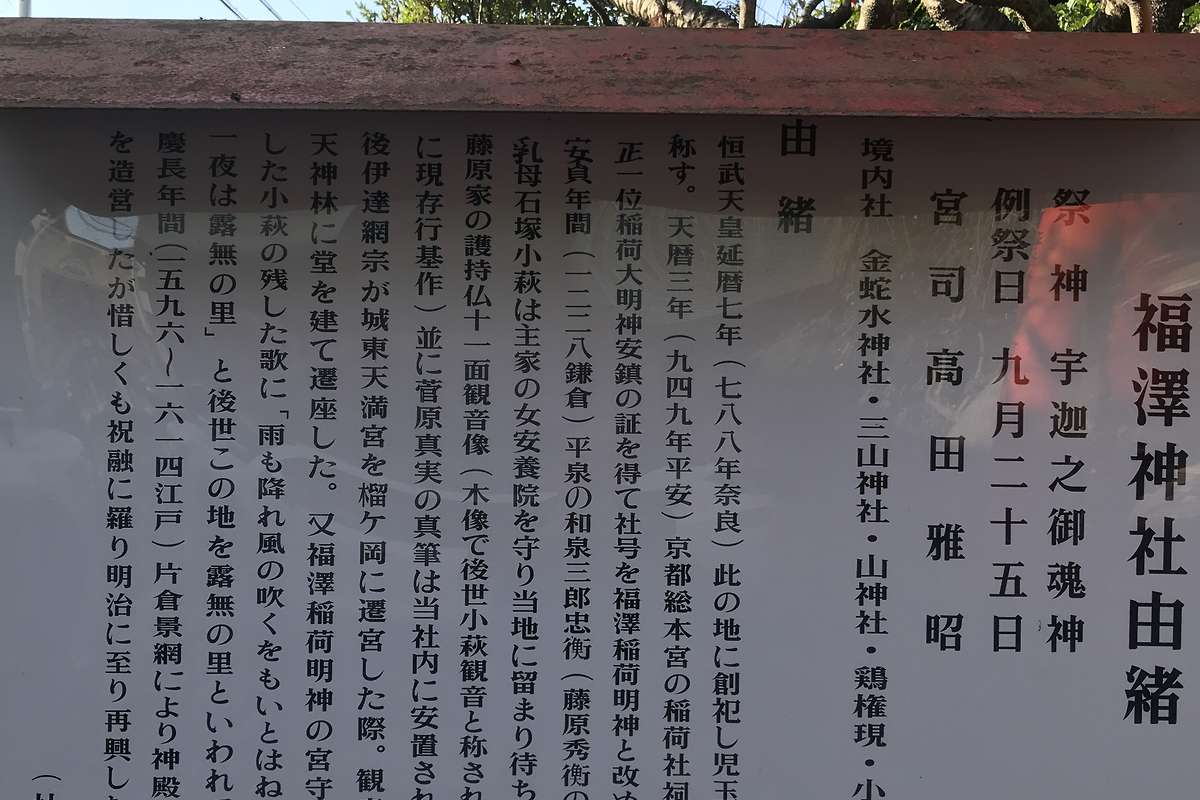 福澤神社由緒
祭神 宇迦之御魂神
例祭日 九月二十五日
宮司 高田雅昭
境内社 金蛇水神社・三山神社・山神社・鶏権現・小
由緒
恒武天皇延暦七年(七八八年奈良)此の地に創祀し児玉
称す。天暦三年(九四九年平安)京都総本宮の稲荷社祠
正一位稲荷大明神安鎮の証を得て社号を福澤稲荷明神と改め
安貞年間(一二二八鎌倉)平泉の和泉三郎忠衡(藤原秀衡の
乳母石塚小萩は主家の女安養院を守り当地に留まり待ち
藤原家の護持仏十一面観音像(木像で後世小萩観音と称され
に現存行基作)並に菅原真実の真筆は当社内に安置され
後伊達綱宗が城東天満宮を榴ケ岡に遷宮した際。観
天神林に堂を建て遷座した。又福澤稲荷明神の宮守
した小萩の残した歌に「雨も降れ風の吹くをもいとはね
一夜は露無の里」と後世この地を露無の里といわれ
慶長年間(一五九六～一六一四江戸)片倉景綱により神殿
を造営したが惜しくも祝融に羅り明治に至り再興し